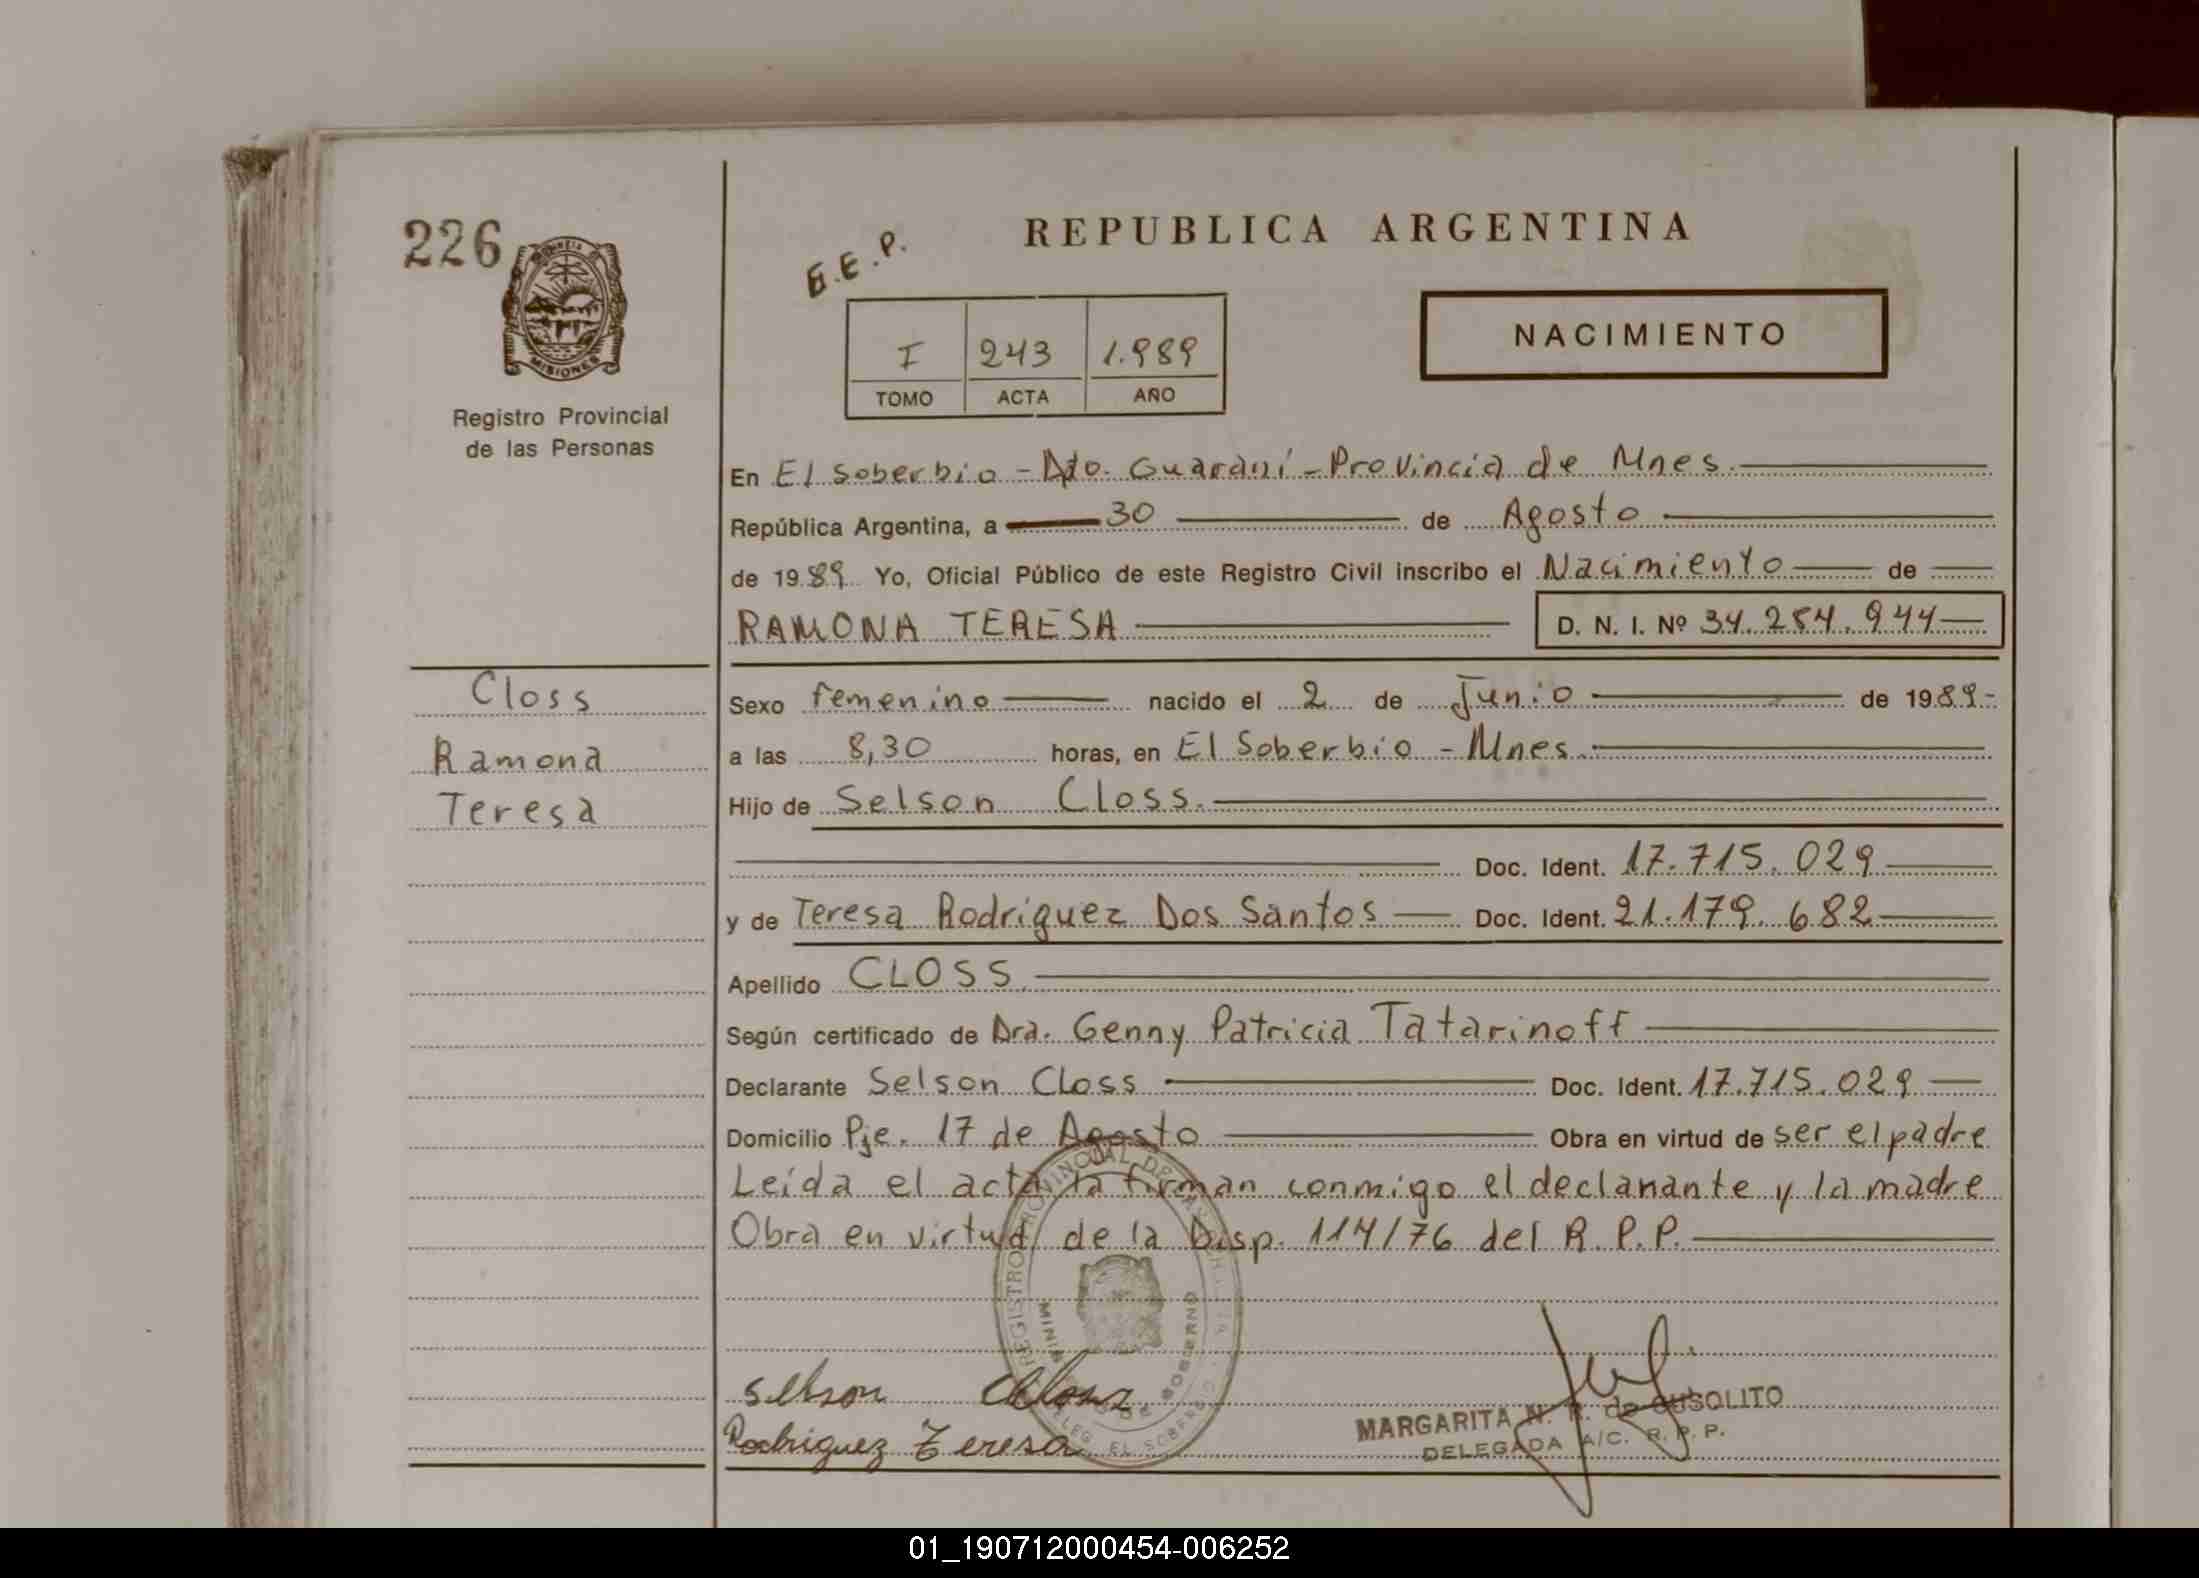 226
REPUBLICA ARGENTINA
E.E.P.
I 243 1.989
TOMO ACTA AÑO
NACIMIENTO
MISIONES
Registro Provincial
de las Personas
En El Soberbio - Dto. Guaraní - Provincia de Mnes.
República Argentina, a 30 de Agosto
de 1989 Yo, Oficial Público de este Registro Civil inscribo el Nacimiento de
RAMONA TERESA D. N. I. Nº 34.284.944
Closs
Ramona
Teresa
Sexo femenino nacido el 2 de Junio de 1989
a las 8,30 horas, en El Soberbio - Mnes.
Hijo de Selson Closs.
Doc. Ident. 17.715.029
y de Teresa Rodriguez Dos Santos Doc. Ident. 21.179.682
Apellido CLOSS.
Según certificado de Dra. Genny Patricia Tatarinoff
Declarante Selson Closs Doc. Ident. 17.715.029
Domicilio Pje. 17 de Agosto Obra en virtud de ser el padre
Leída el acta la firman conmigo el declanante y la madre
Obra en virtud de la Disp. 114/76 del R.P.P.
REGISTRO PROVINCIAL DE LAS
GOBIERNO
DELEG. EL SOBERBIO
Selson Closs
Rodriguez Teresa
MARGARITA N. R. de CUSOLITO
DELEGADA A/C. R. P. P.
01_190712000454-006252